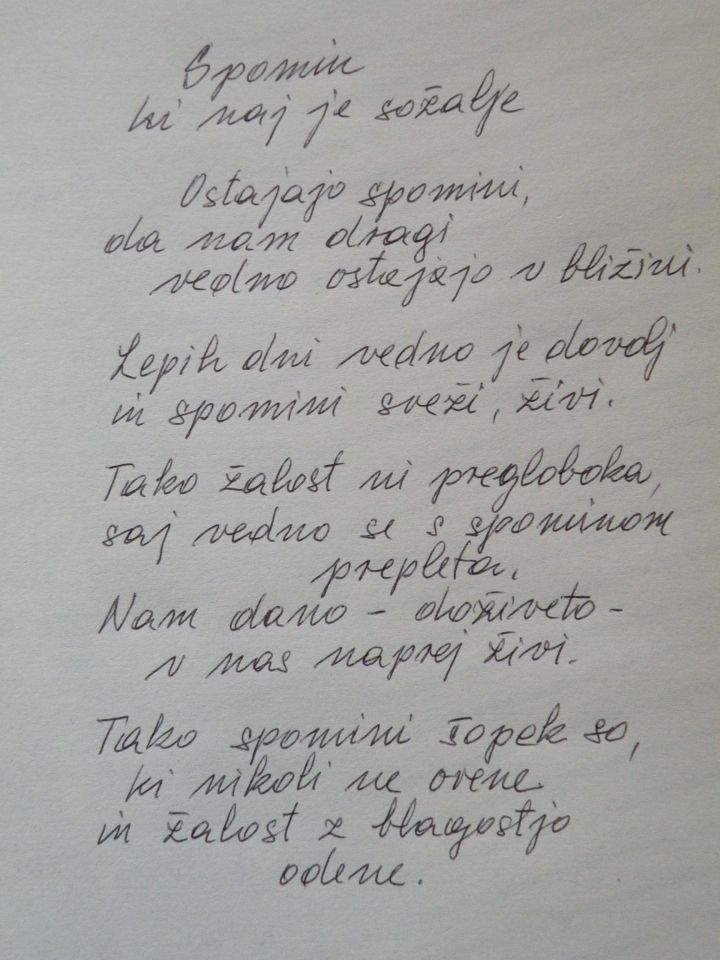 Spomin
ki naj je sožalje
Ostajajo spomini,
da nam dragi
vedno ostajajo v bližini.
Lepih dni vedno je dovolj
in spomini sveži, živi.
Tako žalost ni pregloboka,
saj vedno se s spominom
prepleta.
Nam dano - doživeto -
v nas naprej živi.
Tako spomini šopek so,
ki nikoli ne ovene
in žalost z blagostjo
odene.